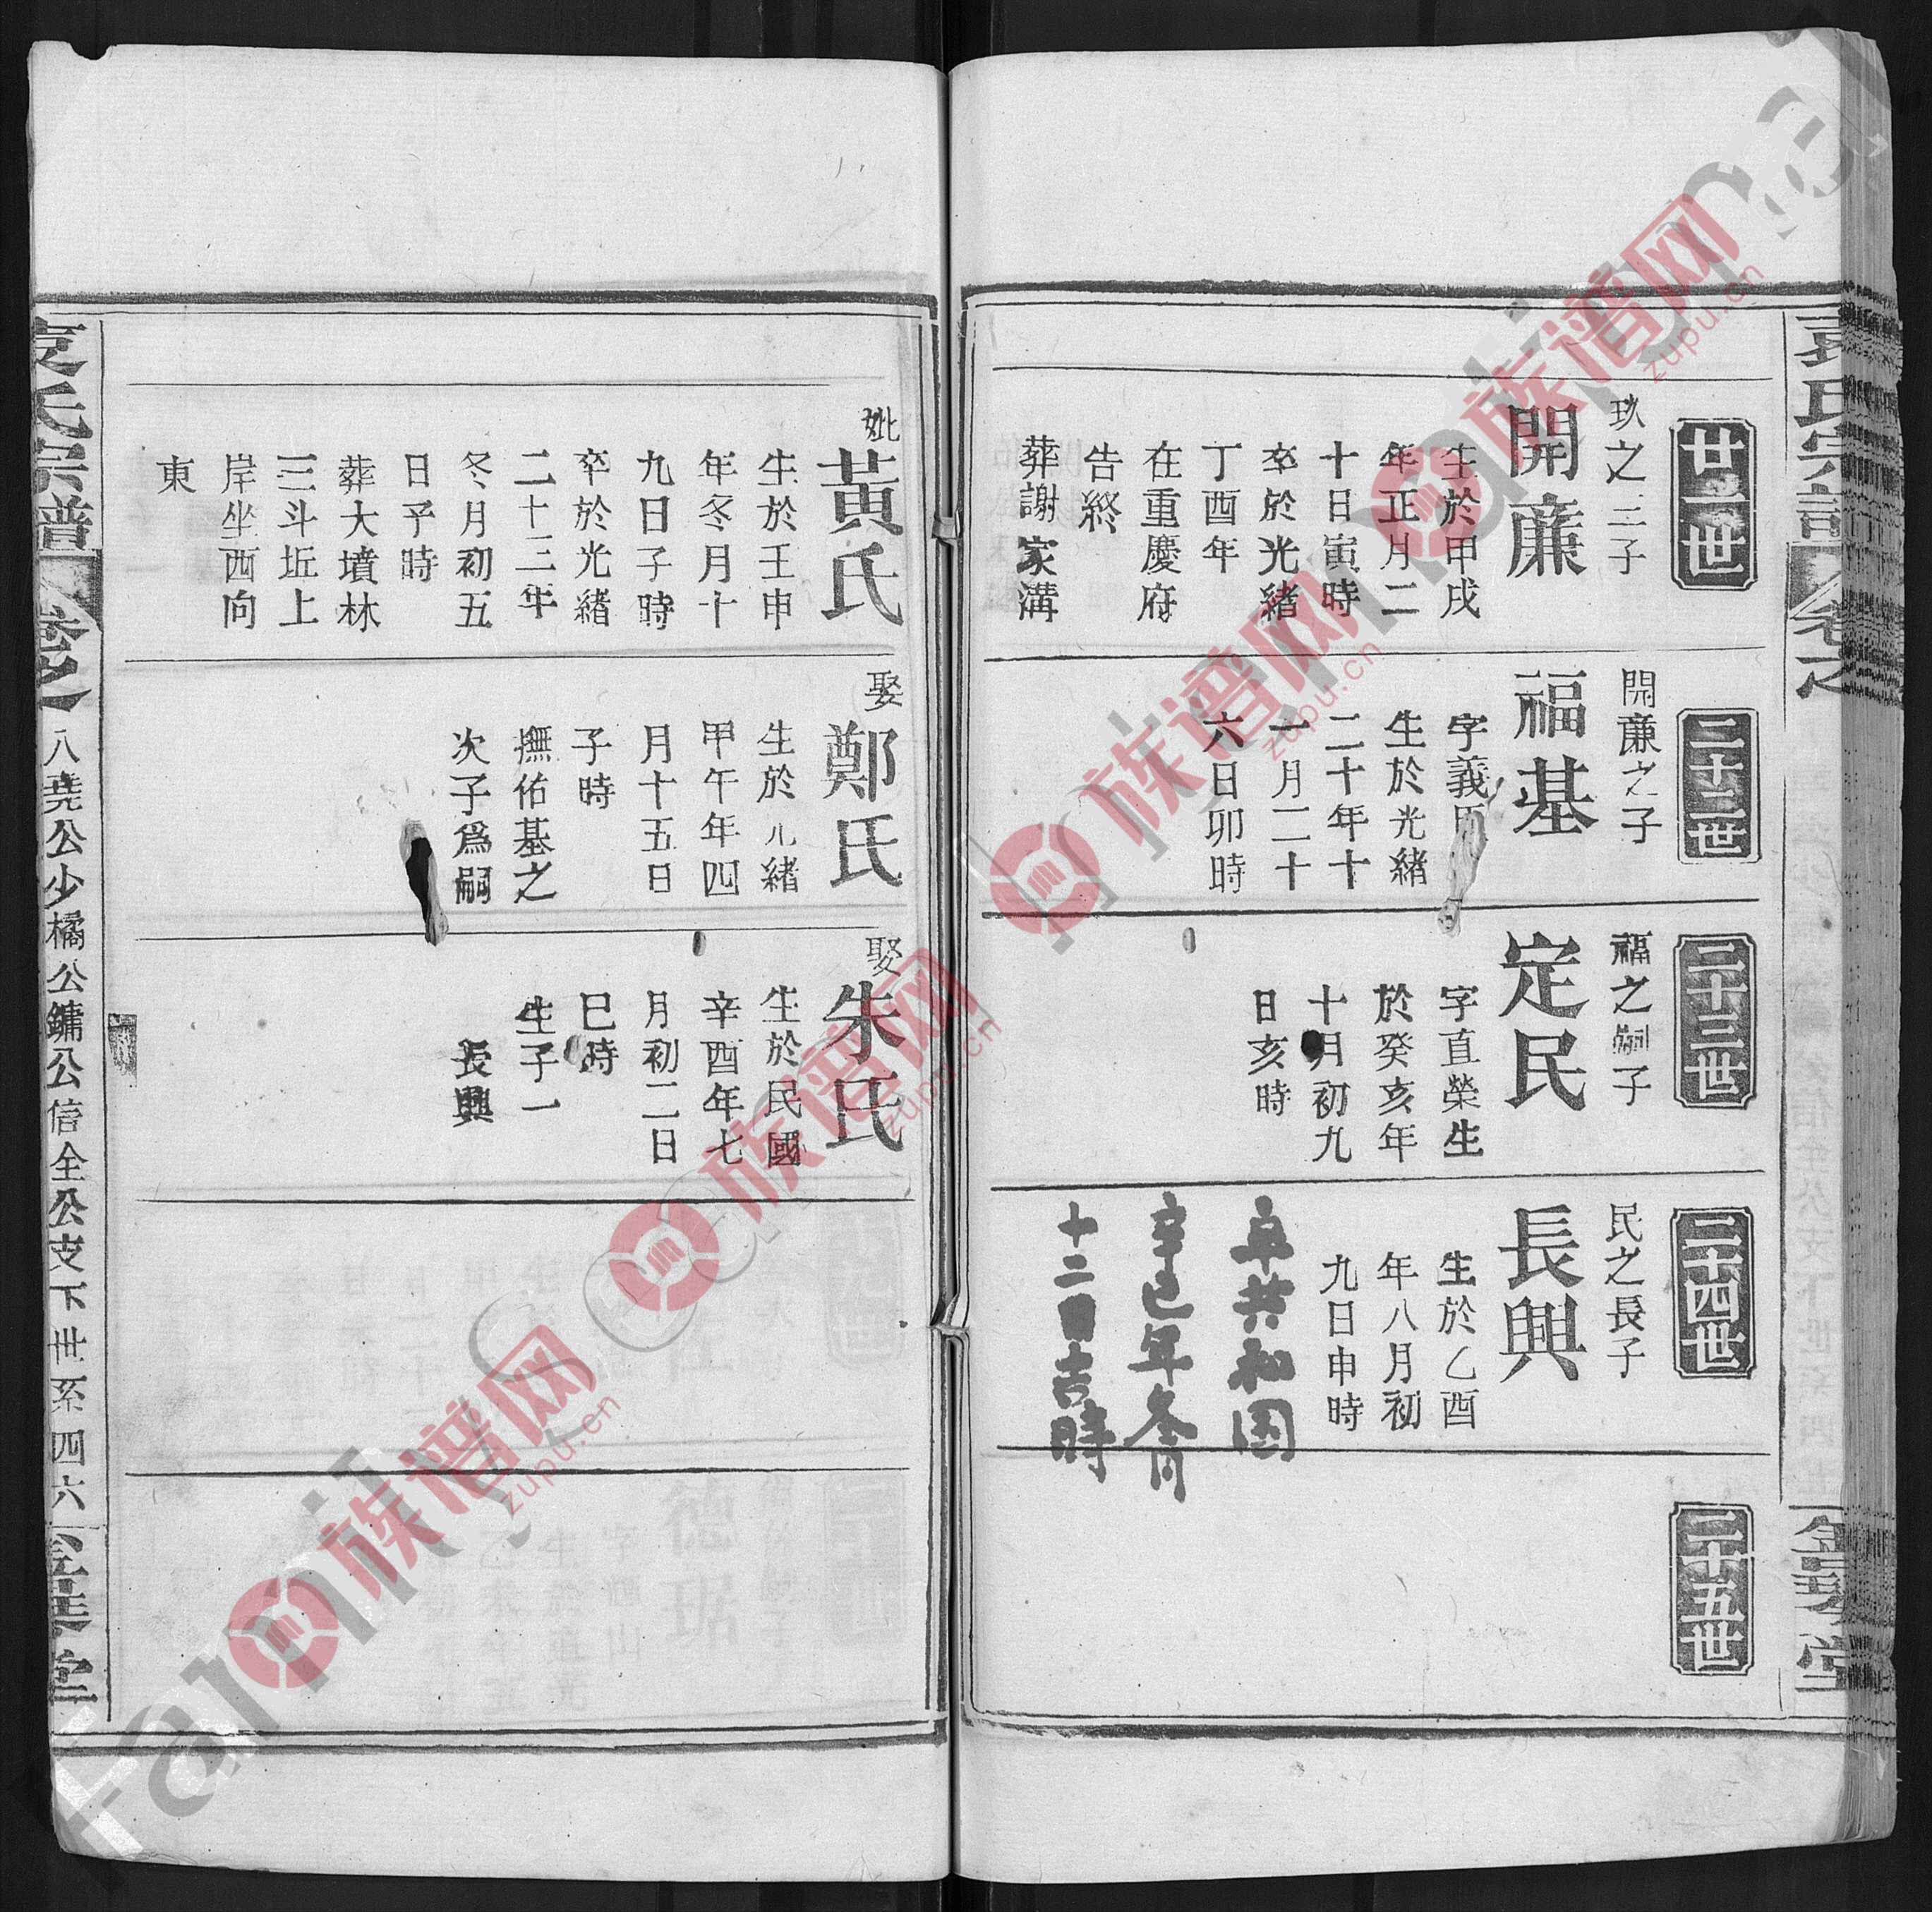 廿一世
玖之三子
開亷
生於甲戌
年正月二
十日寅時
卒於光緒
丁酉年
在重慶府
告終
葬謝家溝
二十二世
開亷之子
福基
字義
生於光緒
二十年十
一月二十
六日卯時
二十三世
福之嗣子
定民
字直榮生
於癸亥年
十月初九
日亥時
二十四世
民之長子
長興
生於乙酉
年八月初
九日申時
卒共和囯
辛巳年冬月
十二日吉時
二十五世
妣
黃氏
生於壬申
年冬月十
九日子時
卒於光緒
二十三年
冬月初五
日子時
葬大墳林
三斗坵上
岸坐西向
東
娶
鄭氏
生於光緒
甲午年四
月十五日
子時
撫佑基之
次子爲嗣
娶
朱氏
生於民國
辛酉年七
月初二日
巳時
生子一
長興
袁氏宗譜
卷之
八堯公少橘公鏞公信全公支下世系四六
族谱网
zupu.cn
族谱网
zupu.cn
族谱网
zupu.cn
族谱网
zupu.cn
族谱网
zupu.cn